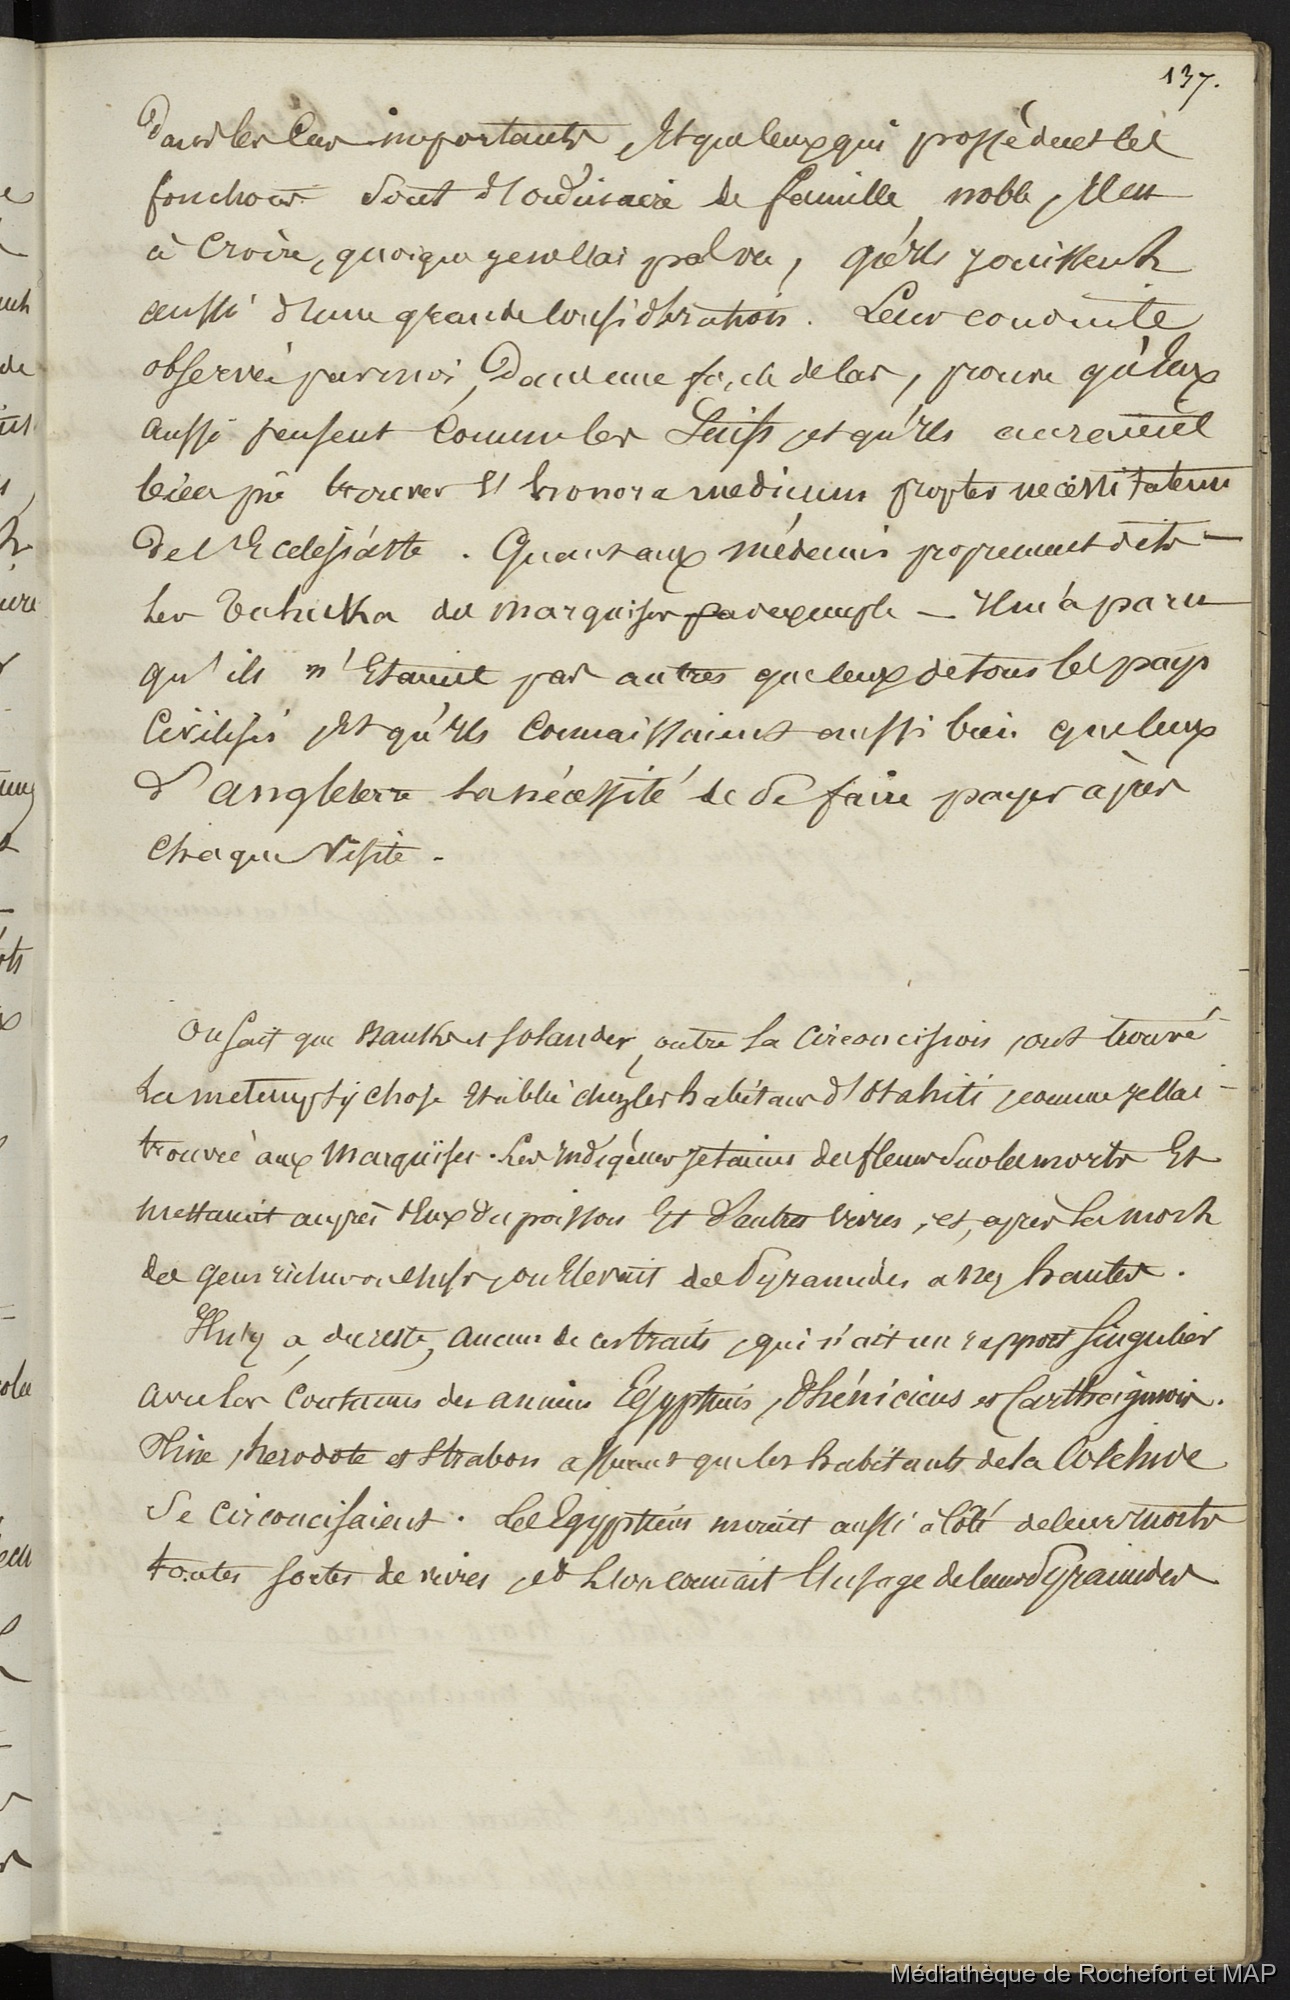 137.
Dans les Cas importants, Et que ceux qui possèdent les
fonctions sont d'ordinaire de famille noble, Il est
à Croire, quoique je ne l'ai pas vu, qu'ils jouissent
aussi d'une grande Considération. Leur conduite
observée par moi, Dans une foule de Cas, prouve qu'Eux
aussi pensent Comme les Juifs, et qu'ils auraient
bien pû trouver le honora medicum propter necessitatem
De l'Eclésiaste. Quant aux médecins proprement dits -
les Tahutka des Marquises par exemple - Il m'a paru
qu'ils n'Etaient pas autres que ceux de tous les pays
Civilisés, Et qu'Ils Connaissaient aussi bien que ceux
d'angleterre la nécessité de se faire payer après
chaque Visite.
On sait que Banks et Solander, outre la Circoncision, ont trouvé
la metempsychose Etablie chez les habitans d'Otahiti, comme je l'ai
trouvée aux Marquises. Les Indigènes jetaient des fleurs sur les morts Et
mettaient auprès d'Eux du poisson Et d'autres vivres, et, après la mort
des gens riches ou chefs, on Elevait des Pyramides assez hautes.
Il n'y a, du reste, aucun de ces traits, qui n'ait un rapport Singulier
avec les Coutumes des anciens Egyptiens, Phéniciens et Carthaginois.
Pline, herodote et Strabon assurent que les habitants de la Colchide
Se circoncisaient. Les Egyptiens mettaient aussi à Côté de leurs morts
toutes sortes de vivres, et L'on connait l'usage de leurs Pyramides
Médiathèque de Rochefort et MAP